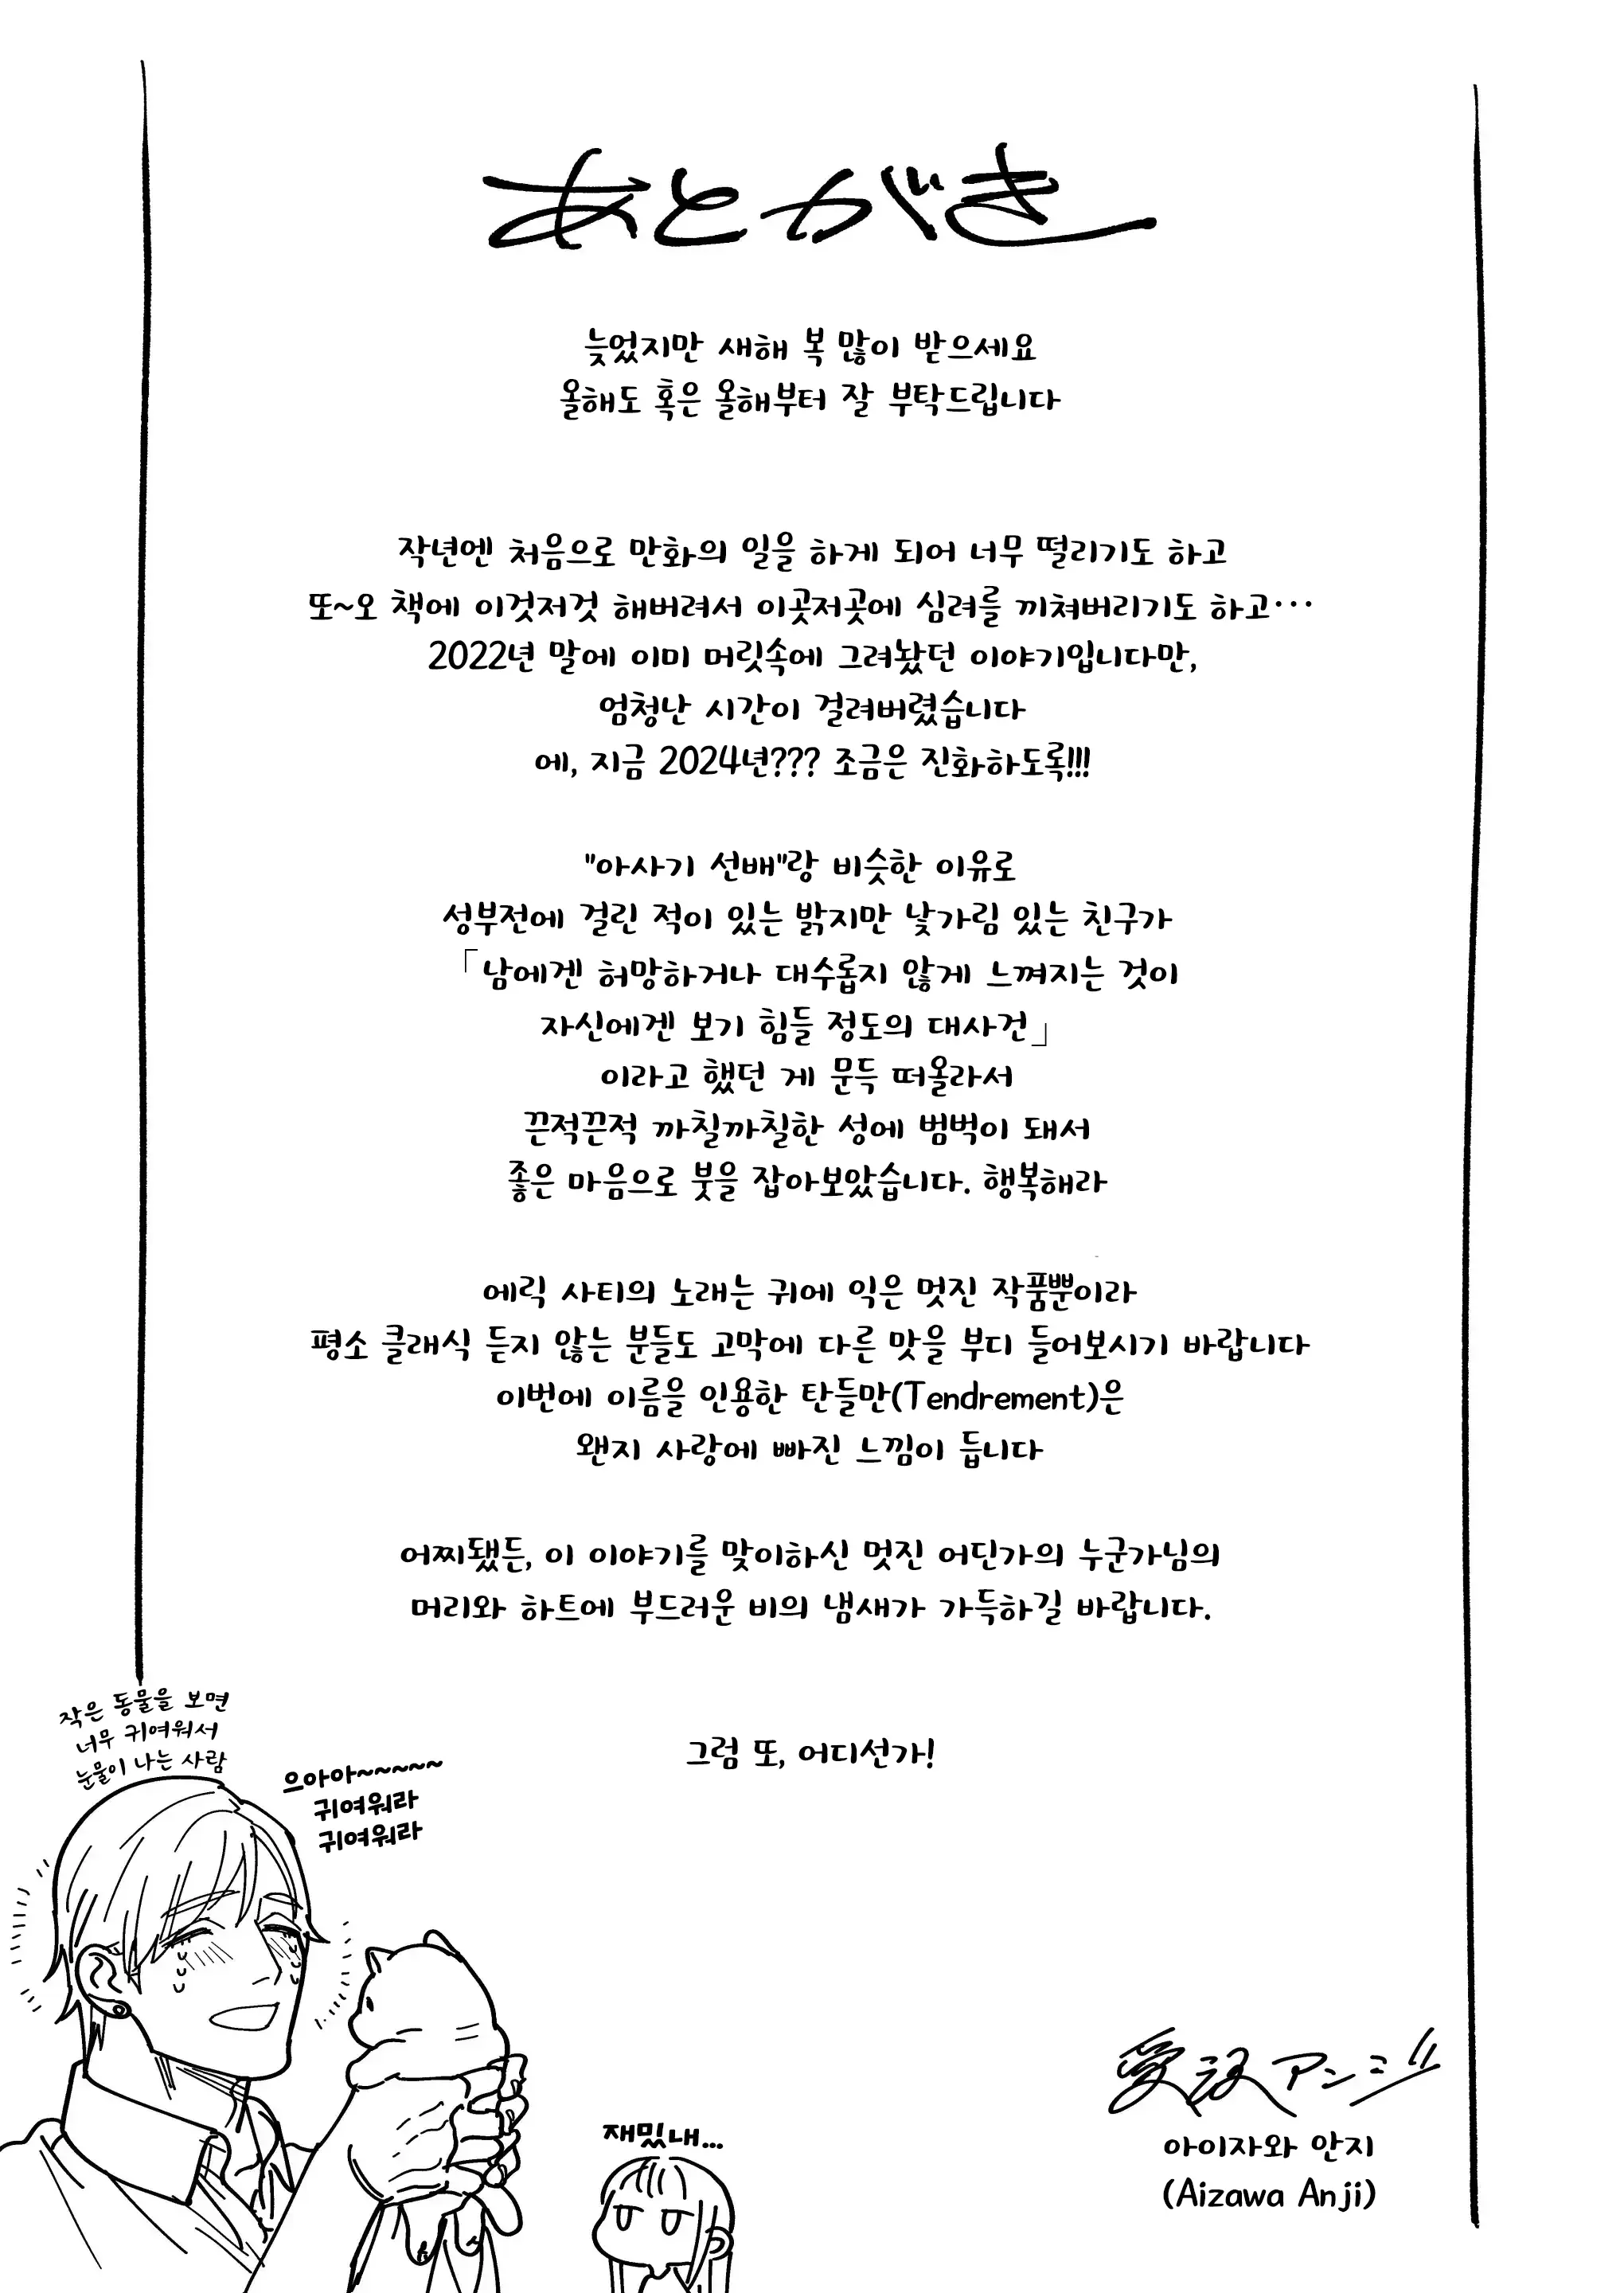 あとがき
늦었지만 새해 복 많이 받으세요
올해도 혹은 올해부터 잘 부탁드립니다
작년엔 처음으로 만화의 일을 하게 되어 너무 떨리기도 하고
또~오 책에 이것저것 해버려서 이곳저곳에 심려를 끼쳐버리기도 하고···
2022년 말에 이미 머릿속에 그려놨던 이야기입니다만,
엄청난 시간이 걸려버렸습니다
에, 지금 2024년??? 조금은 진화하도록!!!
"아사기 선배"랑 비슷한 이유로
성부전에 걸린 적이 있는 밝지만 낯가림 있는 친구가
「남에겐 허망하거나 대수롭지 않게 느껴지는 것이
자신에겐 보기 힘들 정도의 대사건」
이라고 했던 게 문득 떠올라서
끈적끈적 까칠까칠한 성에 범벅이 돼서
좋은 마음으로 붓을 잡아보았습니다. 행복해라
에릭 사티의 노래는 귀에 익은 멋진 작품뿐이라
평소 클래식 듣지 않는 분들도 고막에 다른 맛을 부디 들어보시기 바랍니다
이번에 이름을 인용한 탄들만(Tendrement)은
왠지 사랑에 빠진 느낌이 듭니다
어찌됐든, 이 이야기를 맞이하신 멋진 어딘가의 누군가님의
머리와 하트에 부드러운 비의 냄새가 가득하길 바랍니다.
그럼 또, 어디선가!
작은 동물을 보면
너무 귀여워서
눈물이 나는 사람
으아아~~~~~
귀여워라
귀여워라
재밌내...
愛沢アンジ
아이자와 안지
(Aizawa Anji)